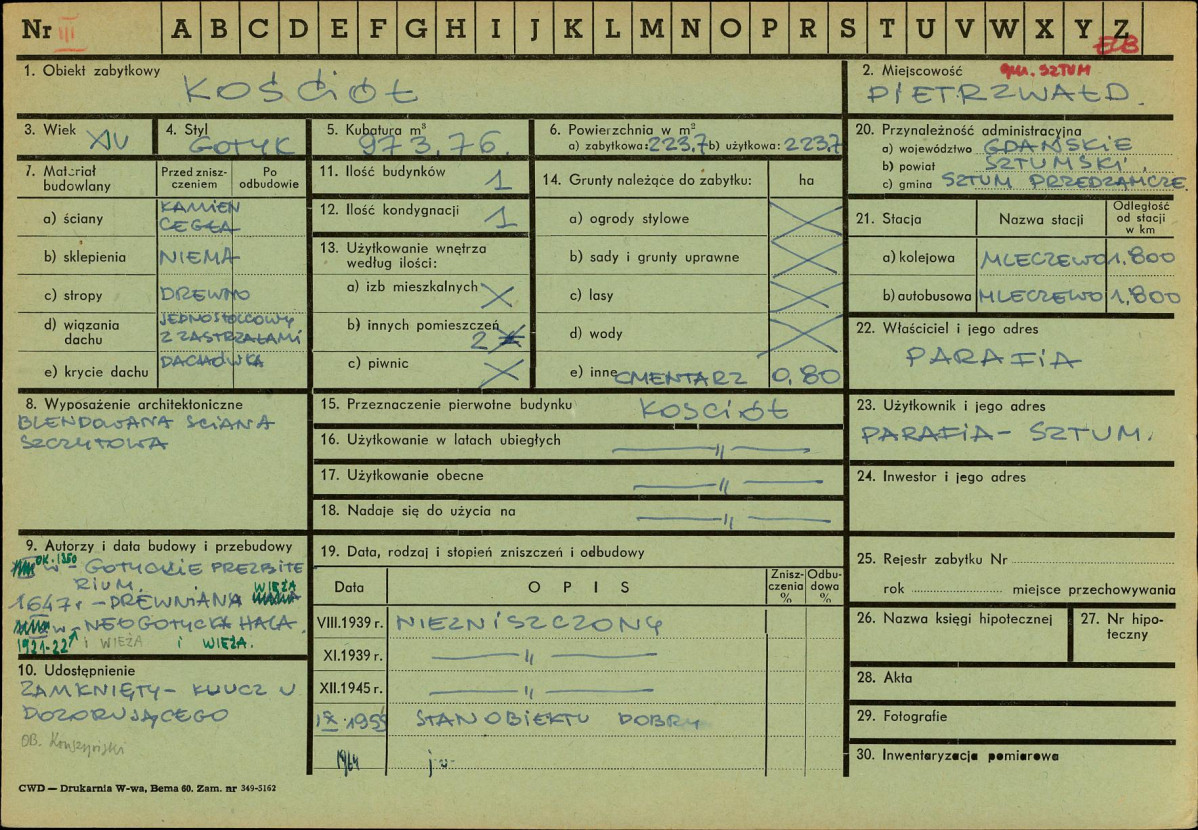 Nr III A B C D E F G H I J K L M N O P R S T U V W X Y Z
ECB
1. Obiekt zabytkowy
KOŚCIÓŁ
2. Miejscowość gm. SZTUM
PIETRZWAŁD.
3. Wiek XIV
4. Styl
GOTYK
5. Kubatura m³
973,76.
6. Powierzchnia w m²
a) zabytkowa: 223,7 b) użytkowa: 223,7
20. Przynależność administracyjna
a) województwo GDAŃSKIE
b) powiat SZTUMSKI,
c) gmina SZTUM PRZEDZAMCZE
7. Materiał budowlany
Przed zniszczeniem
Po odbudowie
a) ściany KAMIEŃ CEGŁA
b) sklepienia NIEMA
c) stropy DREWNO
d) wiązania dachu JEDNOSTOLCOWY Z ZASTRZAŁAMI
e) krycie dachu DACHÓWKA
11. Ilość budynków 1
12. Ilość kondygnacji 1
13. Użytkowanie wnętrza według ilości:
a) izb mieszkalnych
b) innych pomieszczeń 2
c) piwnic
14. Grunty należące do zabytku: ha
a) ogrody stylowe
b) sady i grunty uprawne
c) lasy
d) wody
e) inne CMENTARZ 0,80
21. Stacja Nazwa stacji Odległość od stacji w km
a) kolejowa MLECZEWO 1,800
b) autobusowa MLECZEWO 1,800
22. Właściciel i jego adres
PARAFIA
8. Wyposażenie architektoniczne
BLENDOWANA ŚCIANA
SZCZYTOWA
15. Przeznaczenie pierwotne budynku KOŚCIÓŁ
16. Użytkowanie w latach ubiegłych — „ —
17. Użytkowanie obecne — „ —
18. Nadaje się do użycia na — „ —
23. Użytkownik i jego adres
PARAFIA - SZTUM.
24. Inwestor i jego adres
9. Autorzy i data budowy i przebudowy
OK. 1350
w - GOTYCKIE PREZBITE
RIUM. WIEŻA
1647 r - DREWNIANA
w - NEOGOTYCKA HALA.
1921-22 i WIEŻA i WIEŻA.
10. Udostępnienie
ZAMKNIĘTY - KLUCZ U
DOZORUJĄCEGO
OB.
19. Data, rodzaj i stopień zniszczeń i odbudowy
Data OPIS Zniszczenia % Odbudowa %
VIII.1939 r. NIEZNISZCZONY
XI.1939 r. — „ —
XII.1945 r. — „ —
IX.1959 STAN OBIEKTU DOBRY
1964 j.w.
25. Rejestr zabytku Nr
rok miejsce przechowywania
26. Nazwa księgi hipotecznej
27. Nr hipoteczny
28. Akta
29. Fotografie
30. Inwentaryzacja pomiarowa
CWD — Drukarnia W-wa, Bema 60. Zam. nr 349-5162